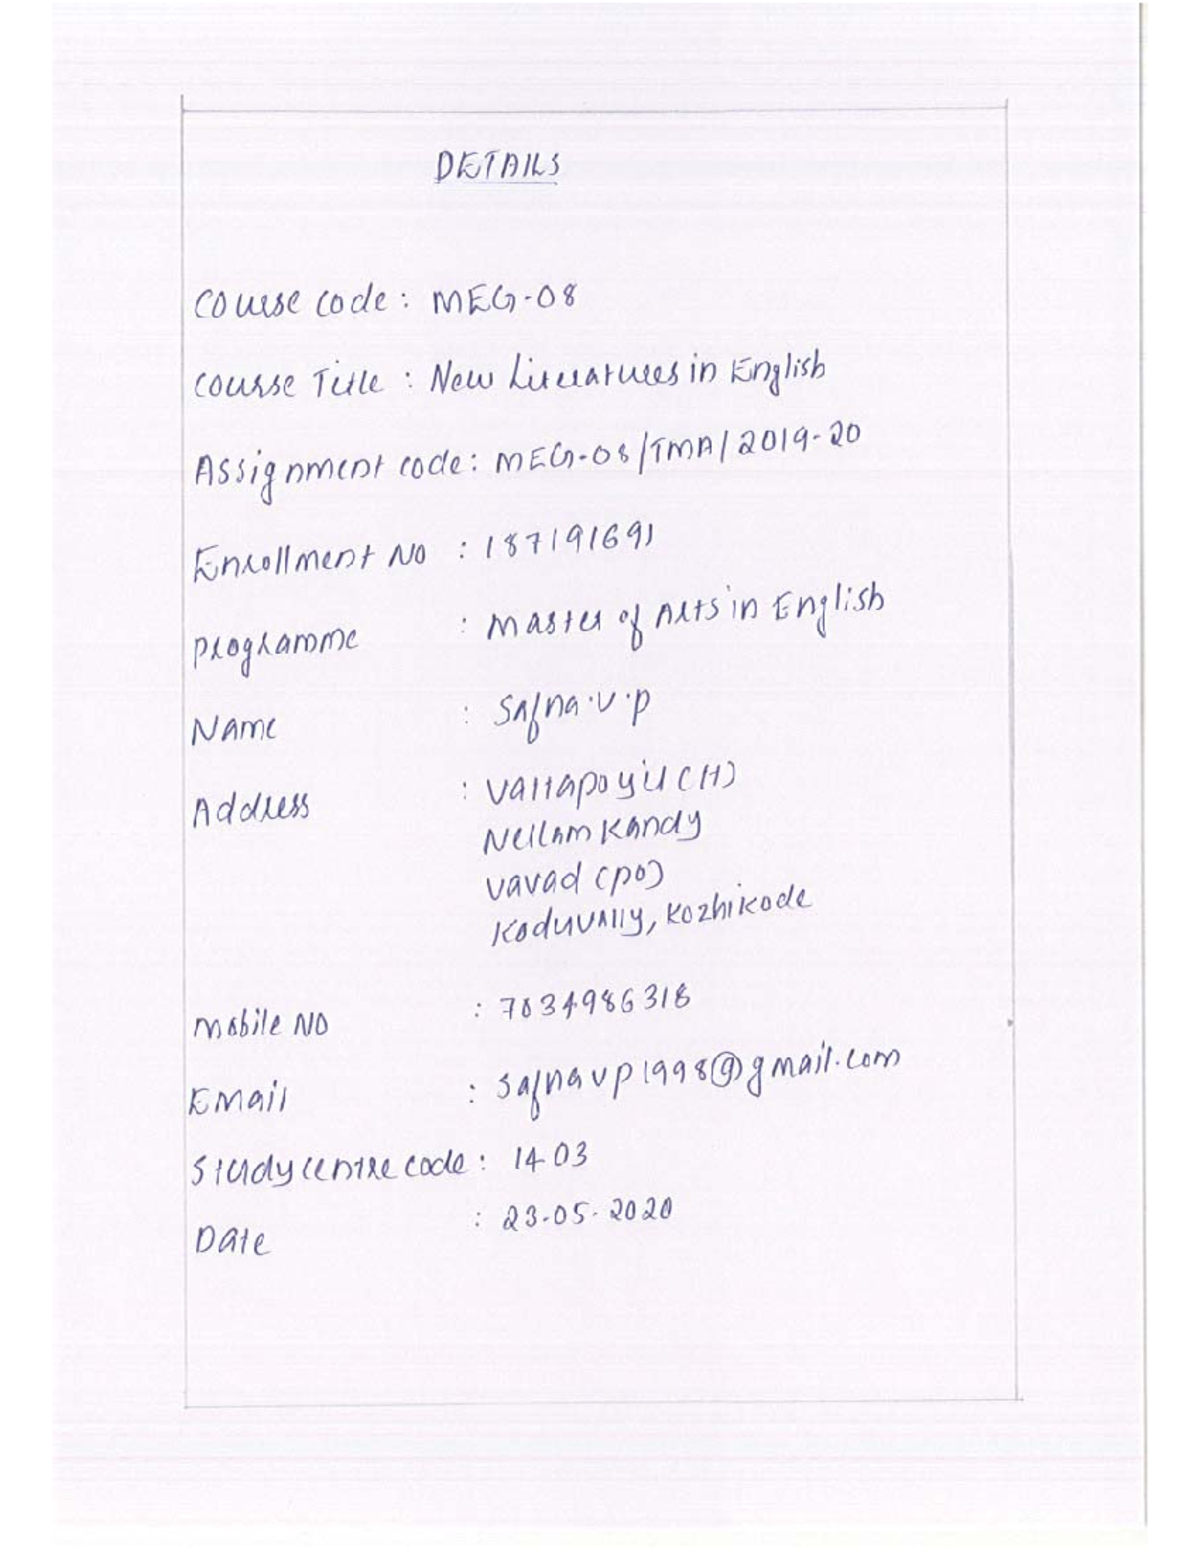 DETAILS
Course code : MEG-08
Course Title : New Literatures in English
Assignment code : MEG-08/TMA/2019-20
Enrollment No : 187191691
Programme : Master of Arts in English
Name : Safna.V.P
Address : Vattapoyil (H)
Nellamkandy
Vavad (PO)
Koduvally, Kozhikode
Mobile No : 7034986318
Email : safnavp1998@gmail.com
Study centre code : 1403
Date : 23-05-2020